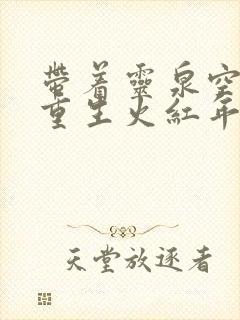 带着靈泉空
重生火紅年
天堂放逐者